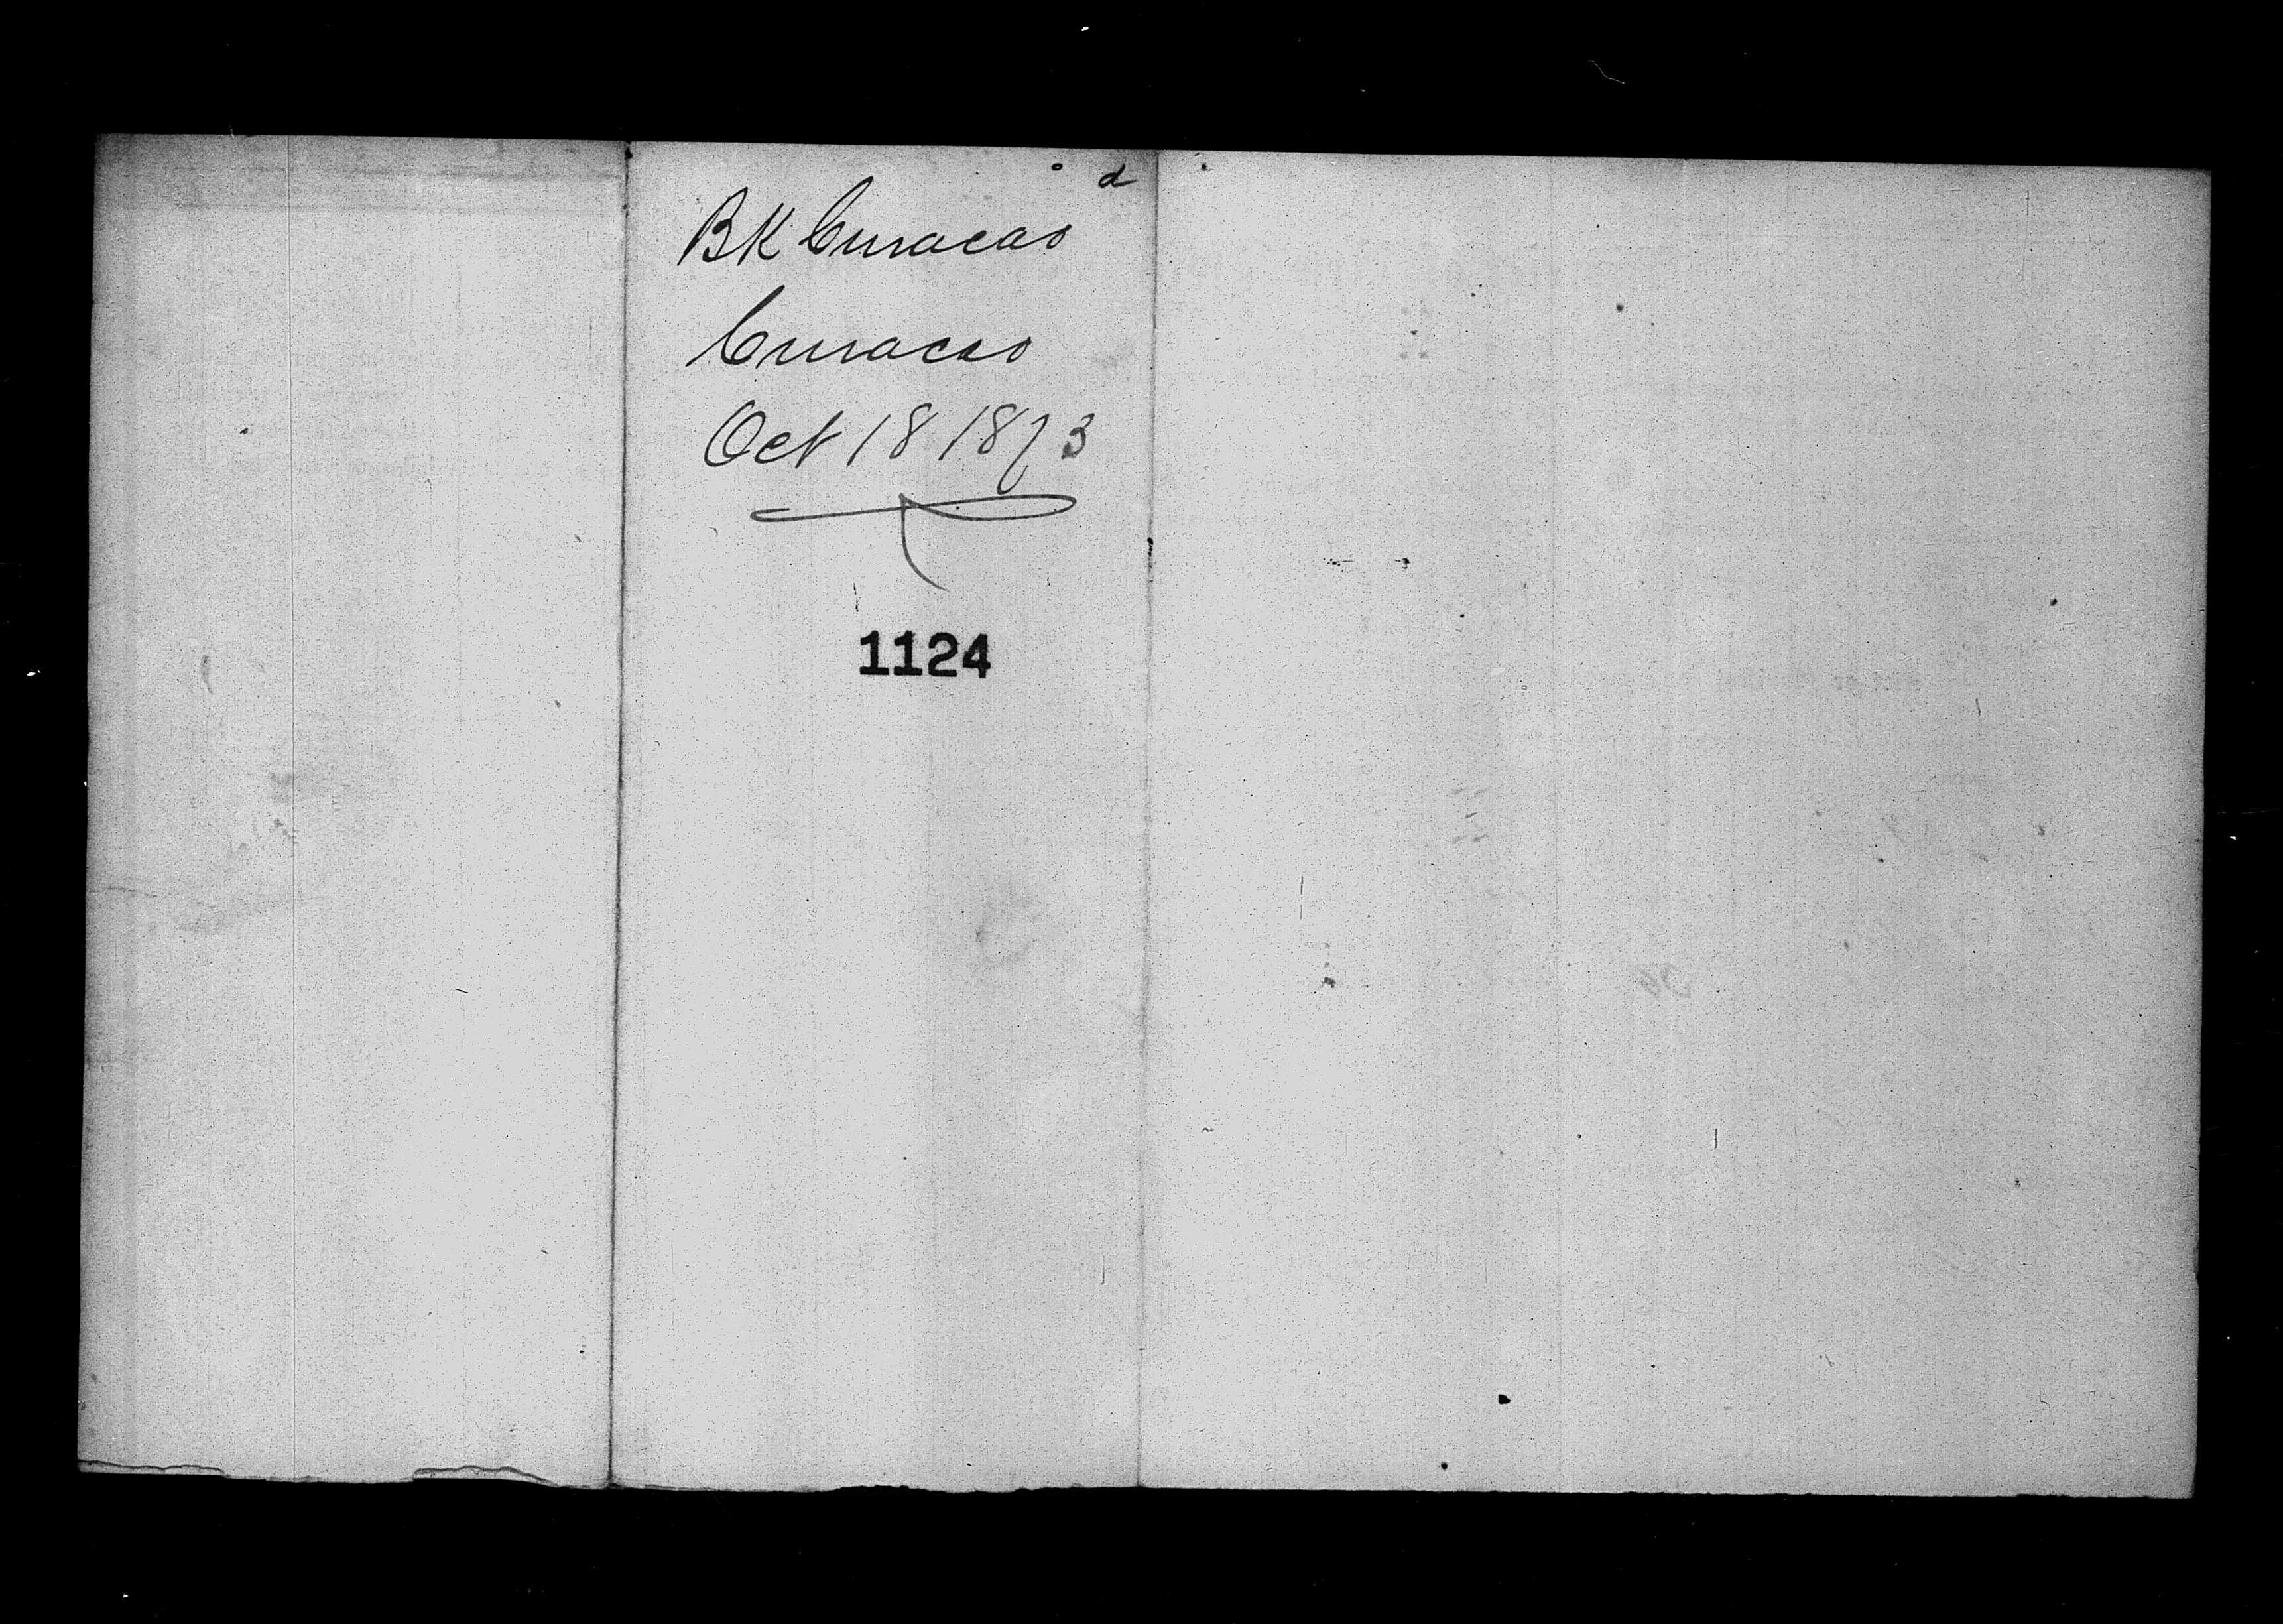 d
BK Curacao
Curacao
Oct 18 1873
1124